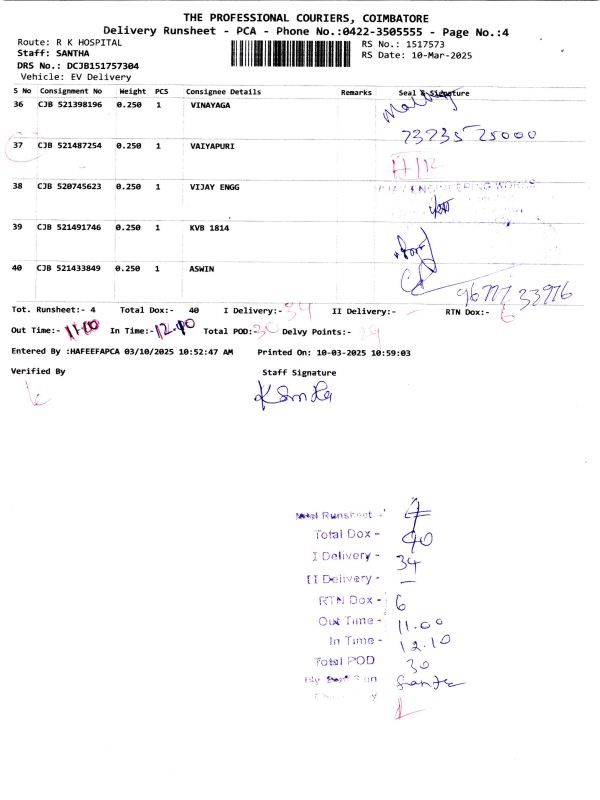 THE PROFESSIONAL COURIERS, COIMBATORE
Delivery Runsheet - PCA - Phone No.:0422-3505555 - Page No.:4
Route: R K HOSPITAL
RS No.: 1517573
Staff: SANTHA
RS Date: 10-Mar-2025
DRS No.: DCJB151757304
Vehicle: EV Delivery
S No Consignment No Weight PCS Consignee Details Remarks Seal & Signature
36 CJB 521398196 0.250 1 VINAYAGA
73735 25000
37 CJB 521487254 0.250 1 VAIYAPURI
38 CJB 520745623 0.250 1 VIJAY ENGG
VIJAY ENGINEERING WORKS
39 CJB 521491746 0.250 1 KVB 1814
40 CJB 521433849 0.250 1 ASWIN
96777 33976
Tot. Runsheet:- 4 Total Dox:- 40 I Delivery:- 34 II Delivery:- - RTN Dox:- 6
Out Time:- 11.00 In Time:- 12.10 Total POD: 30 Delvy Points:- 29
Entered By :HAFEEFAPCA 03/10/2025 10:52:47 AM Printed On: 10-03-2025 10:59:03
Verified By Staff Signature
Total Runsheet - 4
Total Dox - 40
I Delivery - 34
II Delivery - -
RTN Dox - 6
Out Time - 11.00
In Time - 12.10
Total POD 30